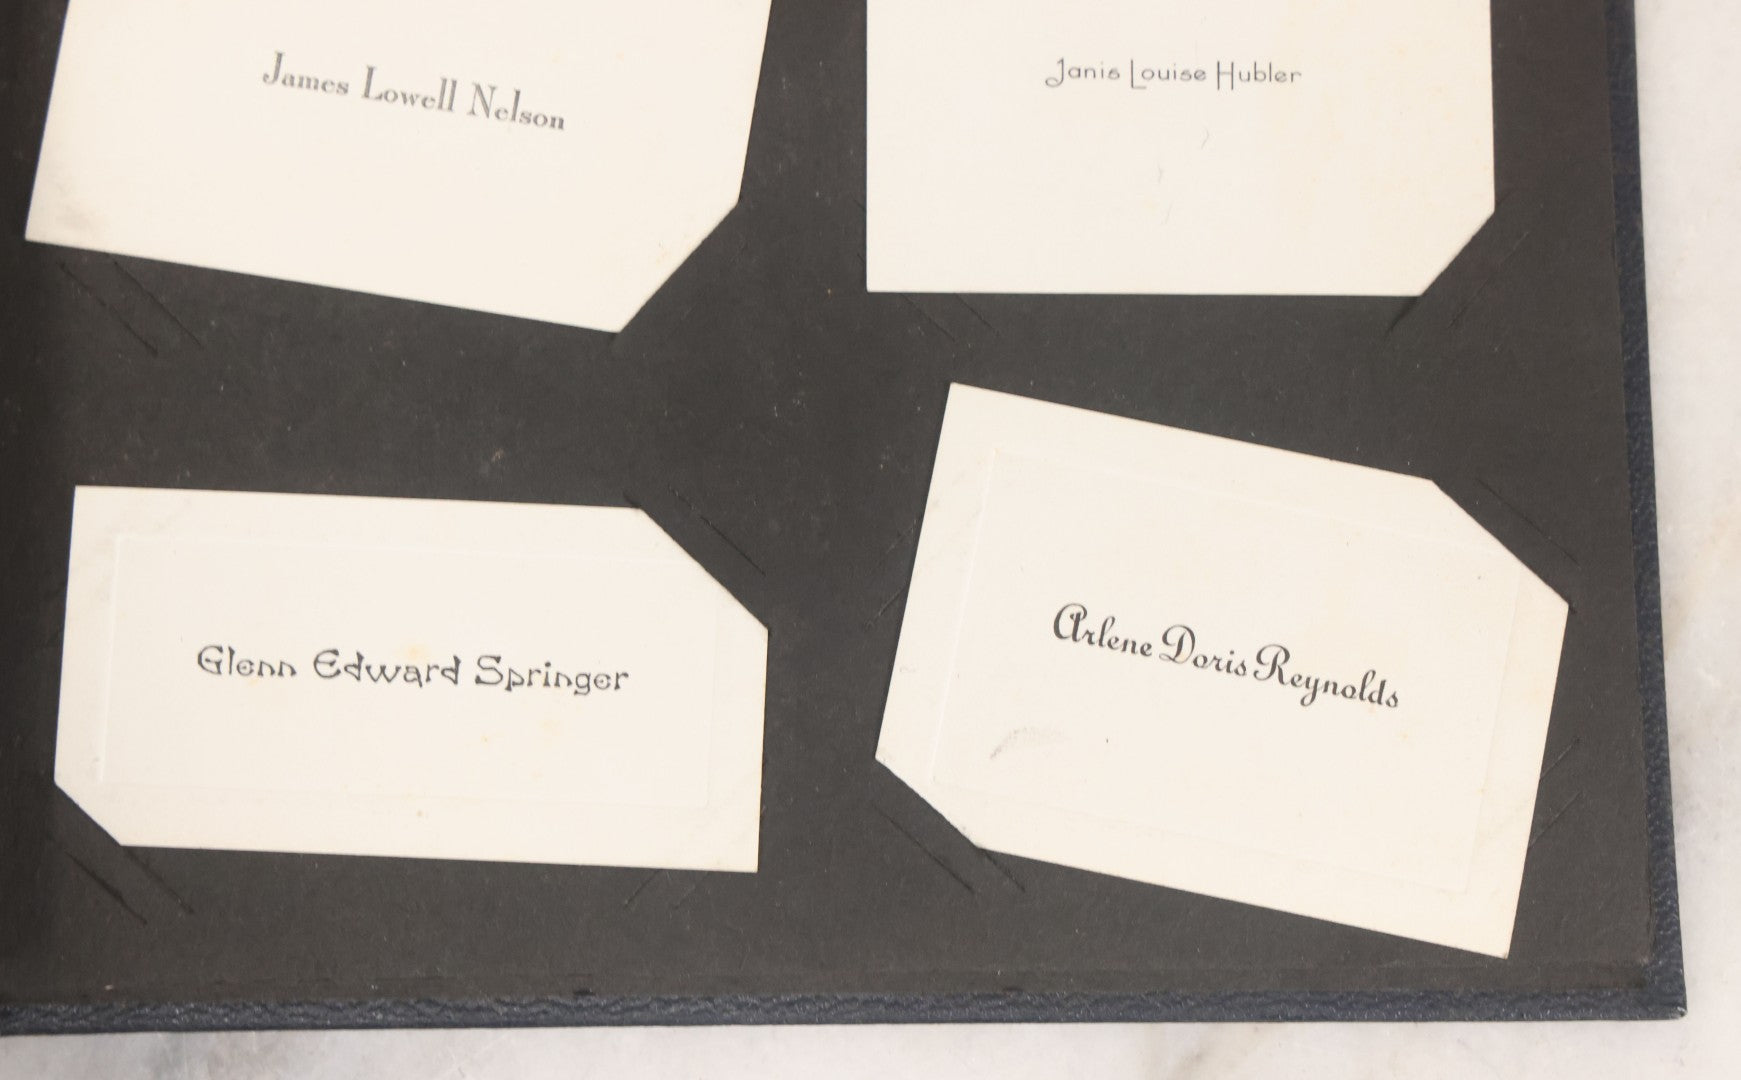 James Lowell Nelson
Janis Louise Hubler
Glenn Edward Springer
Arlene Doris Reynolds